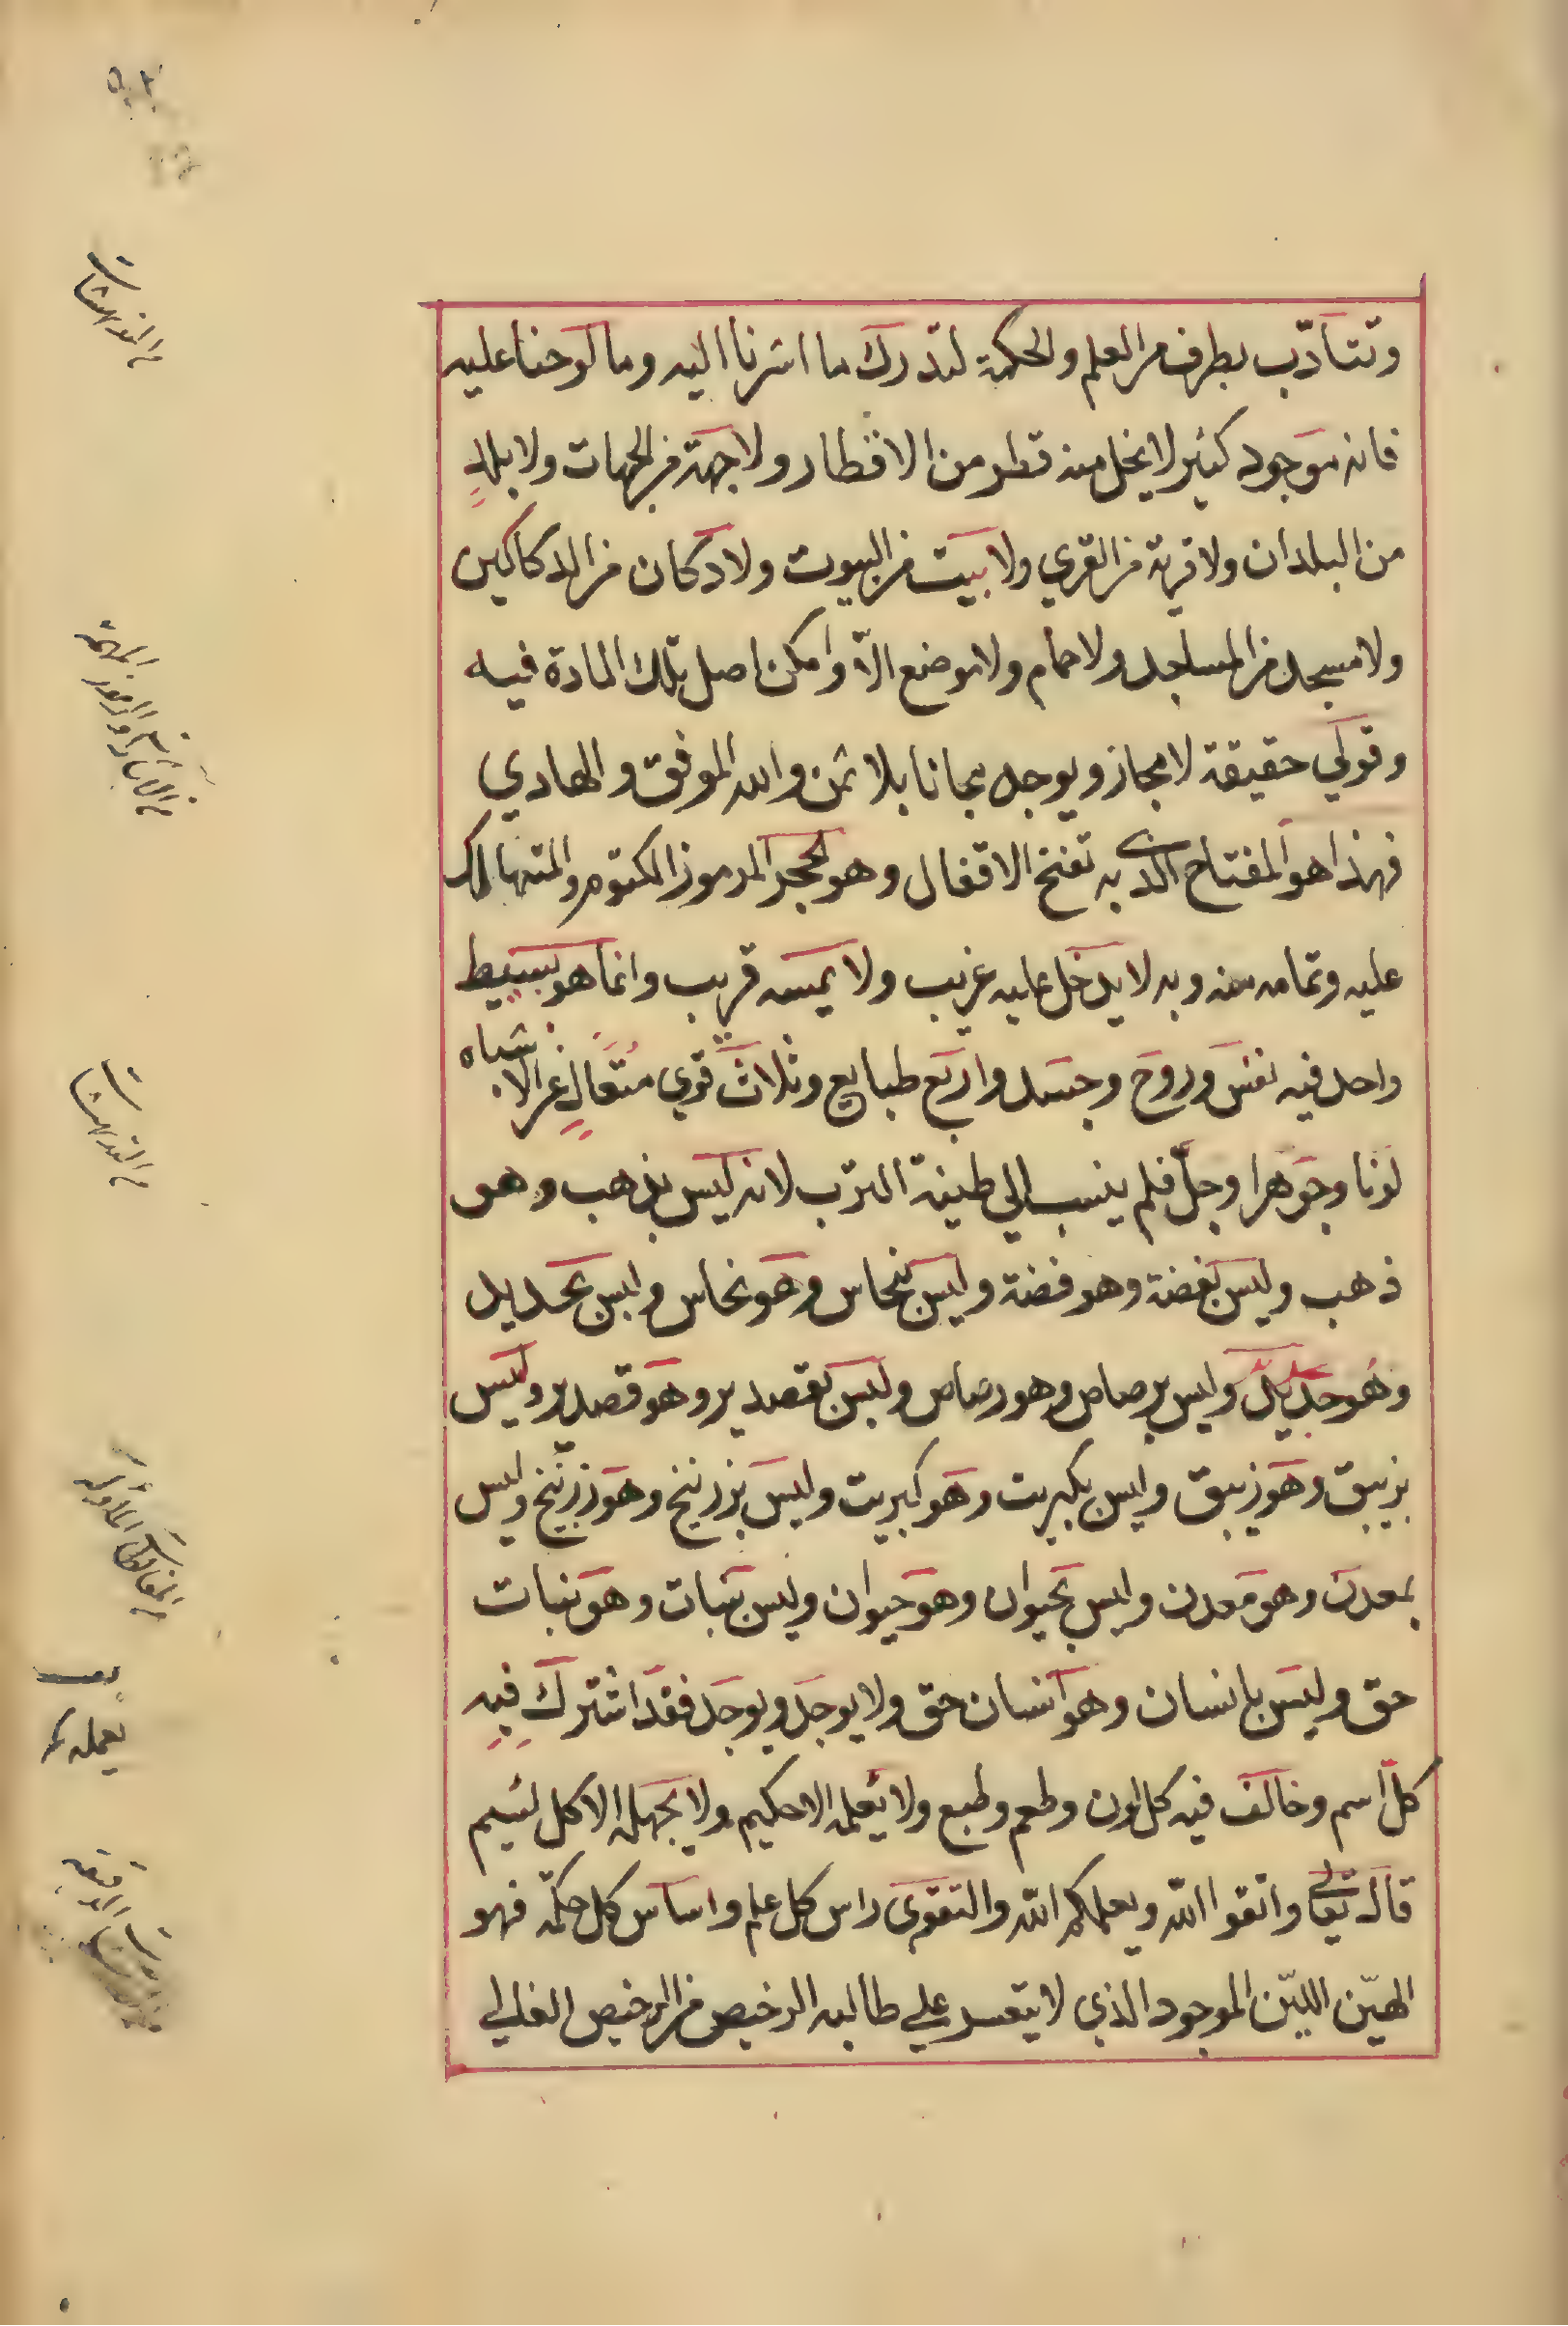 وتتأدّب بطرف من العلم والحكمة لتدرك ما اشرنا اليه وما لوحنا عليه
فانه موجود كثير لا يخل منه قطر من الاقطار ولا جهة من الجهات ولا بلدٍ
من البلدان ولا قرية من القري ولا بيت من البيوت ولا دكان من الدكاكين
ولا مسجد من المساجد ولا حمام ولا موضع الاّ وامكن اصل تلك المادة فيه
وقولي حقيقة لا مجاز ويوجد مجانا بلا ثمن والله الموفق والهادي
فهذا هو المفتاح الذي به تفتح الاقفال وهو الحجر المرموز المكتوم والمتهالك
عليه وتمامه منه وبه لا يدخل عليه غريب ولا يمسه قريب وانما هو بسيط
واحد فيه نفس وروح وجسد واربع طبايع وثلاث قوي متعالٍ عن الاشباه
لونا وجوهرا وجلّ فلم ينسب الي طينة الترب لانه ليس بذهب وهو
ذهب وليس بفضة وهو فضة وليس بنحاس وهو نحاس وليس بحديد
وهو حديد وليس برصاص وهو رصاص وليس بقصدير وهو قصدير وليس
بزيبق وهو زيبق وليس بكبريت وهو كبريت وليس بزرنيخ وهو زرنيخ وليس
بمعدن وهو معدن وليس بحيوان وهو حيوان وليس بنبات وهو نبات
حق وليس بانسان وهو انسان حق ولا يوجد ويوجد فقد اشترك فيه
كلّ اسم وخالف فيه كل لون وطعم وطبع ولا يعلمه الا حكيم ولا يجهله الا كل لئيم
قال تعالي واتقوا الله ويعلمكم الله والتقوي راس كل علم واساس كل حكمة فهو
الهيّن الليّن الموجود الذي لا يتعسر علي طالبه الرخيص من الرخيص الغالي